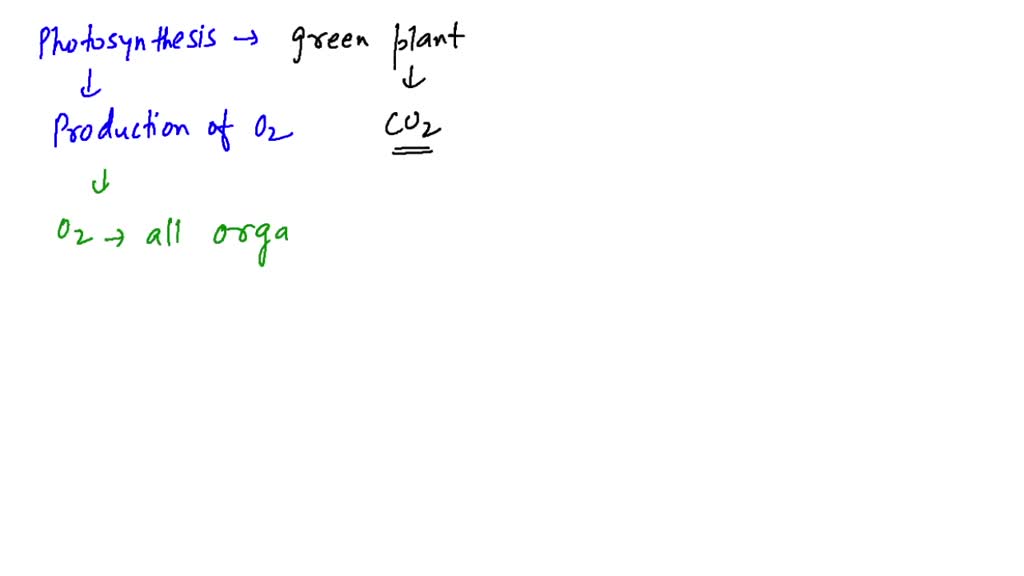 Photosynthesis → green plant
↓ ↓
Production of O2 CO2
↓
O2 → all orga